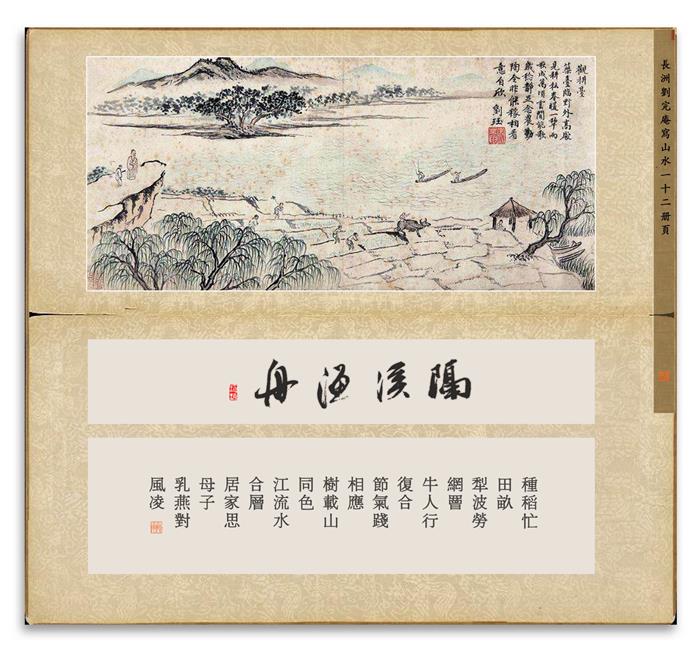 長洲劉完庵寫山水一十二冊頁
觀耕臺
築臺臨野外高
見耕耘春暖一犂雨
歌成萬頃雲閒能歌
歲稔靜足念農勤
陶令非
相看
意自欣 劉珏
隔溪漁舟
種稻忙
田畝
犁波勞
網罾
牛人行
復合
節氣踐
相應
樹載山
同色
江流水
合層
居家思
母子
乳燕對
風凌